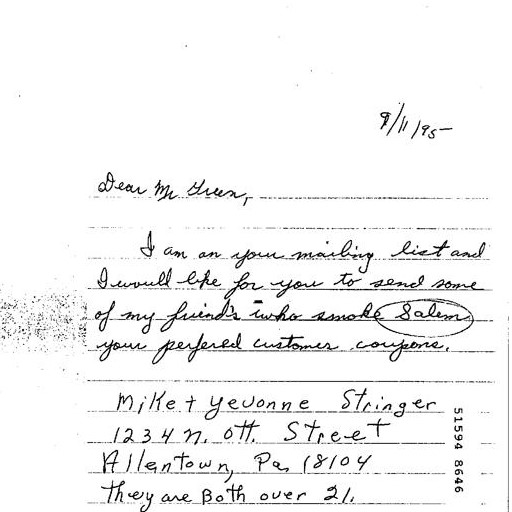 9/11/95
Dear Mr Green,
I am on your mailing list and
I would like for you to send some
of my friend's who smoke Salem
your perfered customer coupons.
Mike + Yevonne Stringer
1234 N. Ott. Street
Allentown, Pa. 18104
They are Both over 21.
51594 8646